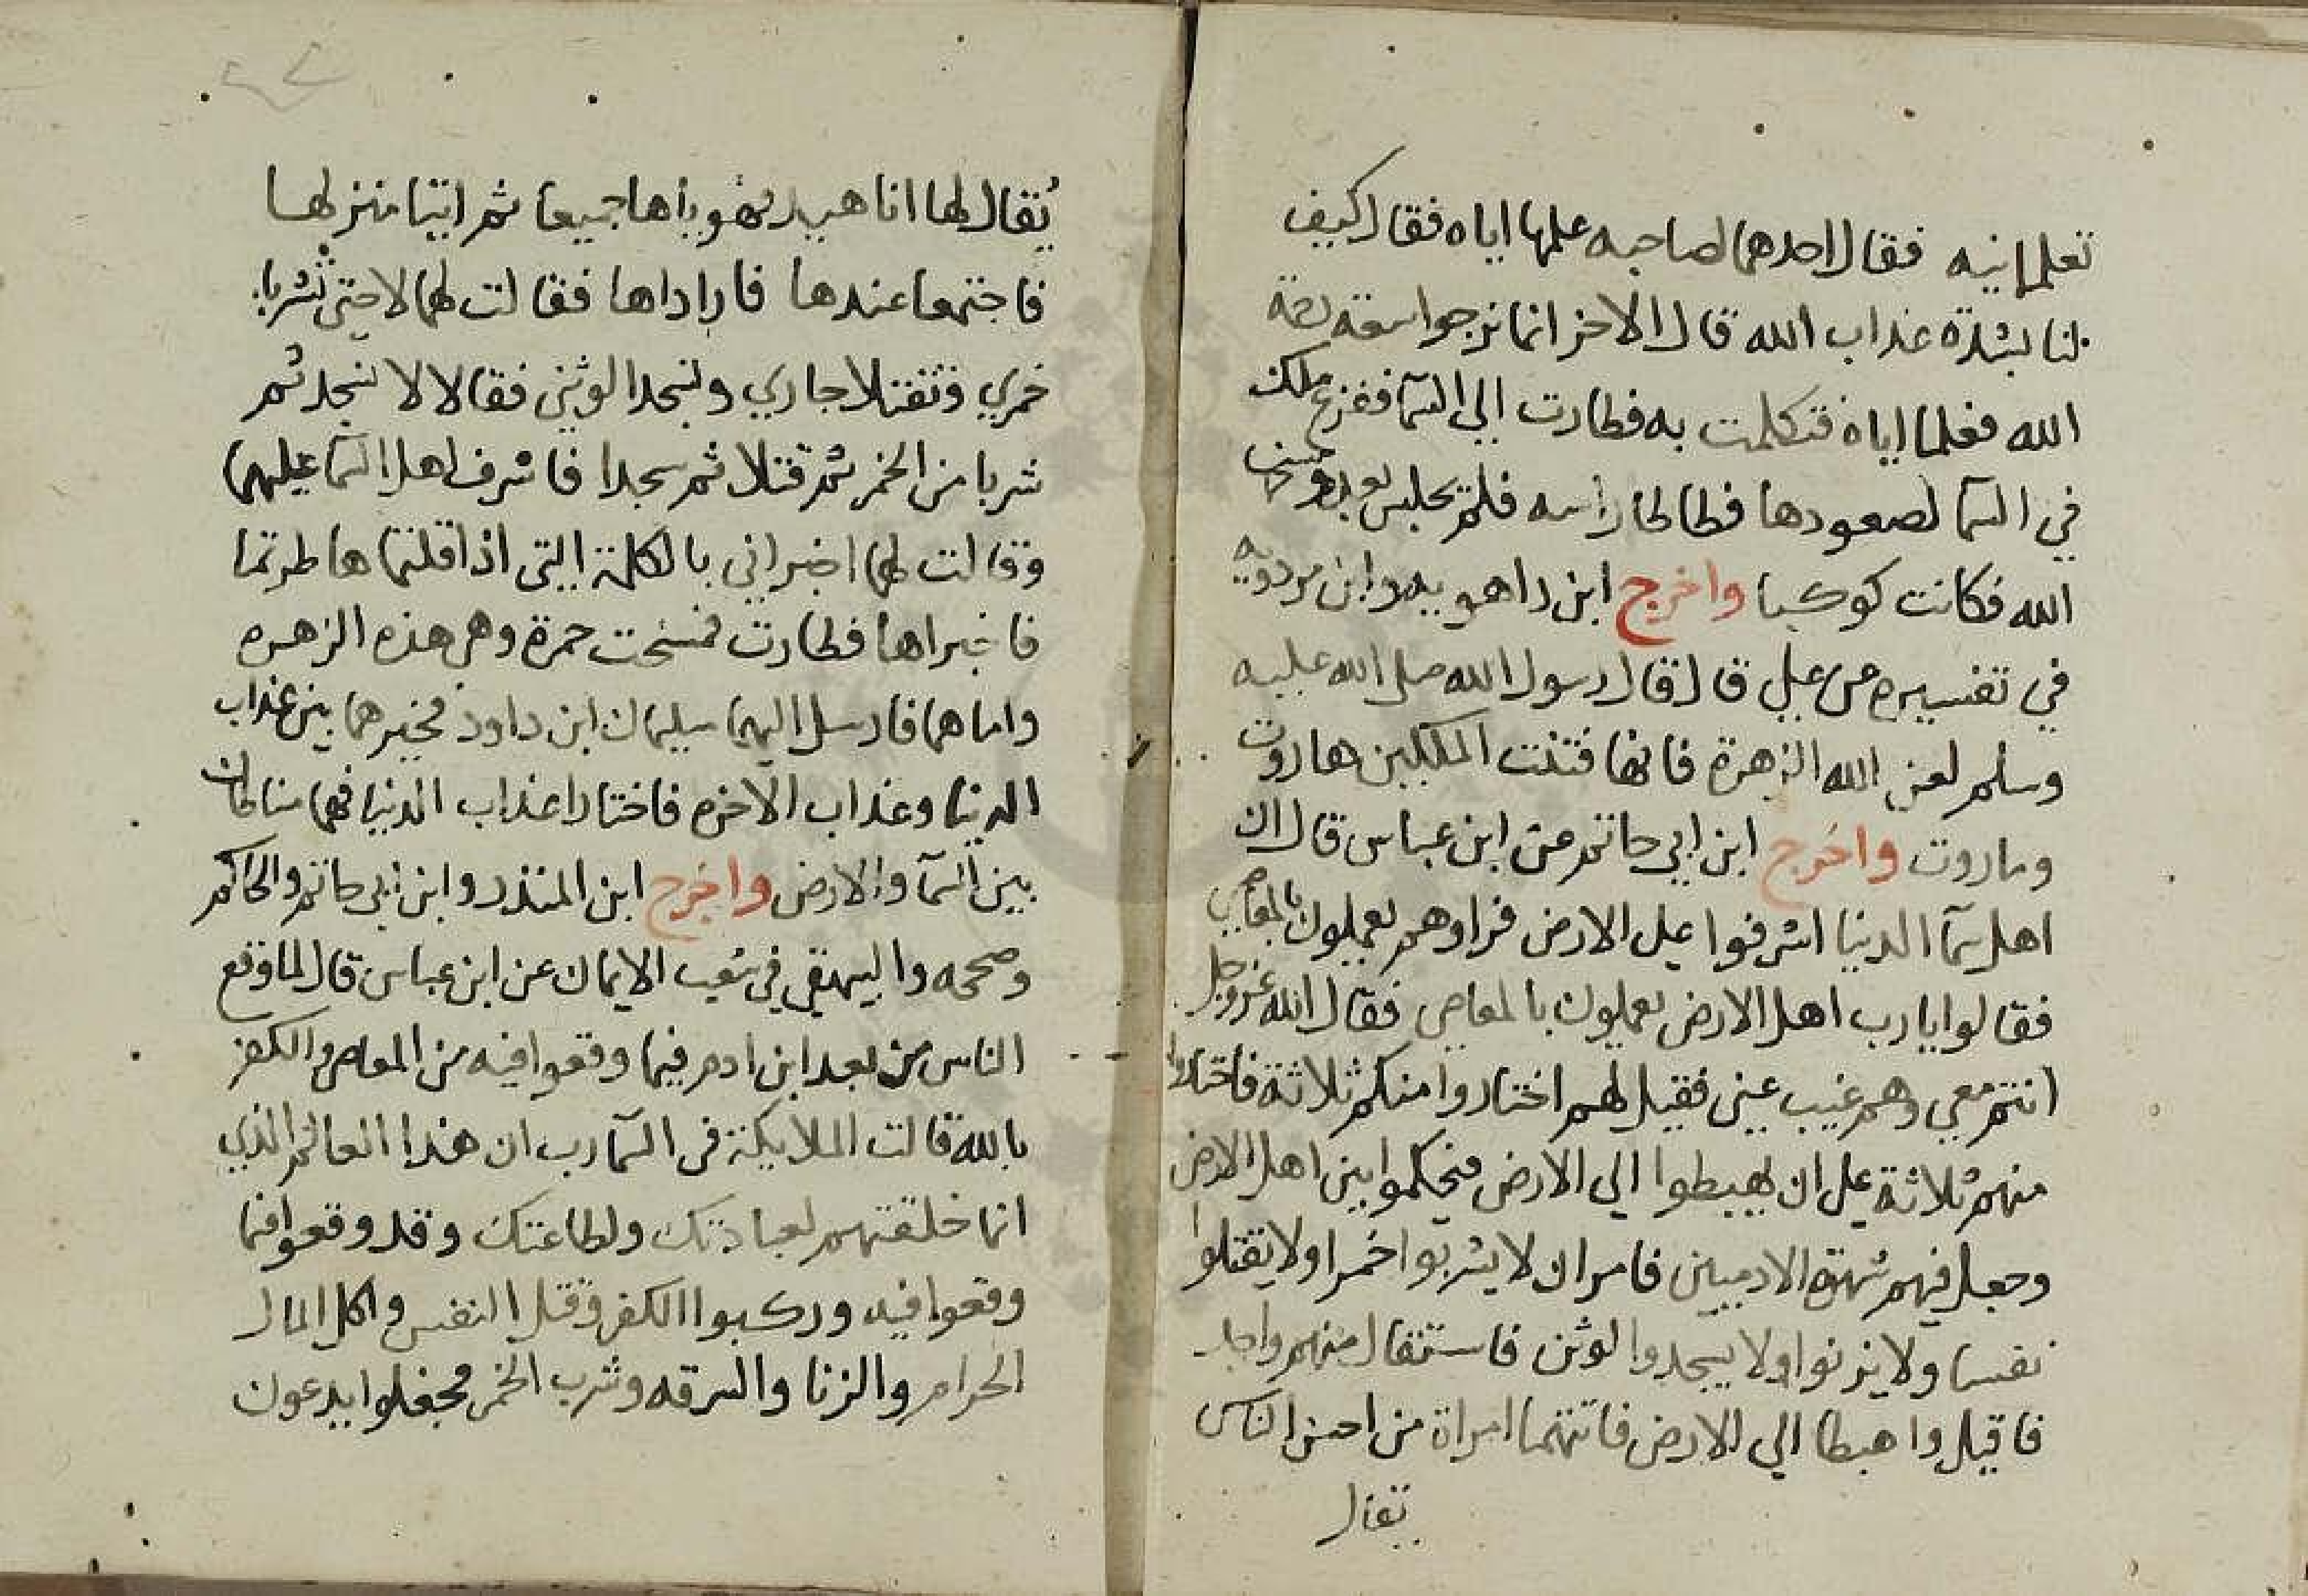 تعلمانيه فقال احدهما لصاحبه علمها اياه فقال كيف
لنا بشدة عذاب الله قال الاخر انا نرجوا سعة رحمة
الله فعلما اياه فتكلمت به فطارت الي السما ففزع ملك
في السما لصعودها فطاطا راسه فلم يجلس بعد ومسخها
الله فكانت كوكبا واخرج ابن راهويه وابن مردويه
في تفسيره عن علي قال قال رسول الله صلى الله عليه
وسلم لعن الله الزهرة فانها فتنت الملكين هاروت
وماروت واخرج ابن ابي حاتم عن ابن عباس قال ان
اهل سما الدنيا اشرفوا علي الارض فراوهم يعملون بالمعاصي
فقالوا يارب اهل الارض يعملون بالمعاصي فقال الله عز وجل
انتم معي وهم غيب عني فقيل لهم اختاروا منكم ثلاثة فاختاروا
منهم ثلاثة علي ان يهبطوا الي الارض فيحكموا بين اهل الارض
وجعل فيهم شهوة الادميين فامر ان لا يشربوا خمرا ولا يقتلوا
نفسا ولا يزنوا ولا يسجدوا لوثن فاستقال منهم واحد
فاقيل واهبطا الي الارض فاتتهما امراة من احسن الناس
يقال
يُقال لها اناهيد فهوياها جميعا ثم اتيا منزلها
فاجتمعا عندها فاراداها فقالت لهما لا حتى تشربا
خمري وتقتلا جاري وتسجدا لوثني فقالا لا نسجد ثم
شربا من الخمر ثم قتلا ثم سجدا فاشرف اهل السما عليهما
وقالت لهما اخبراني بالكلمة التي اذا قلتماها طرتما
فاخبراها فطارت فمسخت جمرة وهي هذه الزهره
واما هما فارسل اليهما سليمان ابن داود فخيرهما بين عذاب
الدنيا وعذاب الاخره فاختارا عذاب الدنيا فهما مناطان
بين السما والارض واخرج ابن المنذر وابن ابي حاتم والحاكم
وصححه والبيهقي في شعب الايمان عن ابن عباس قال لما وقع
الناس من بعد ابن ادم فيما وقعوا فيه من المعاصي والكفر
بالله قالت الملايكة في السما رب ان هذا العالم الذي
انما خلقتهم لعبادتك ولطاعتك وقد وقعوا فيما
وقعوا فيه وركبوا الكفر وقتل النفس واكل المال
الحرام والزنا والسرقه وشرب الخمر فجعلوا يدعون